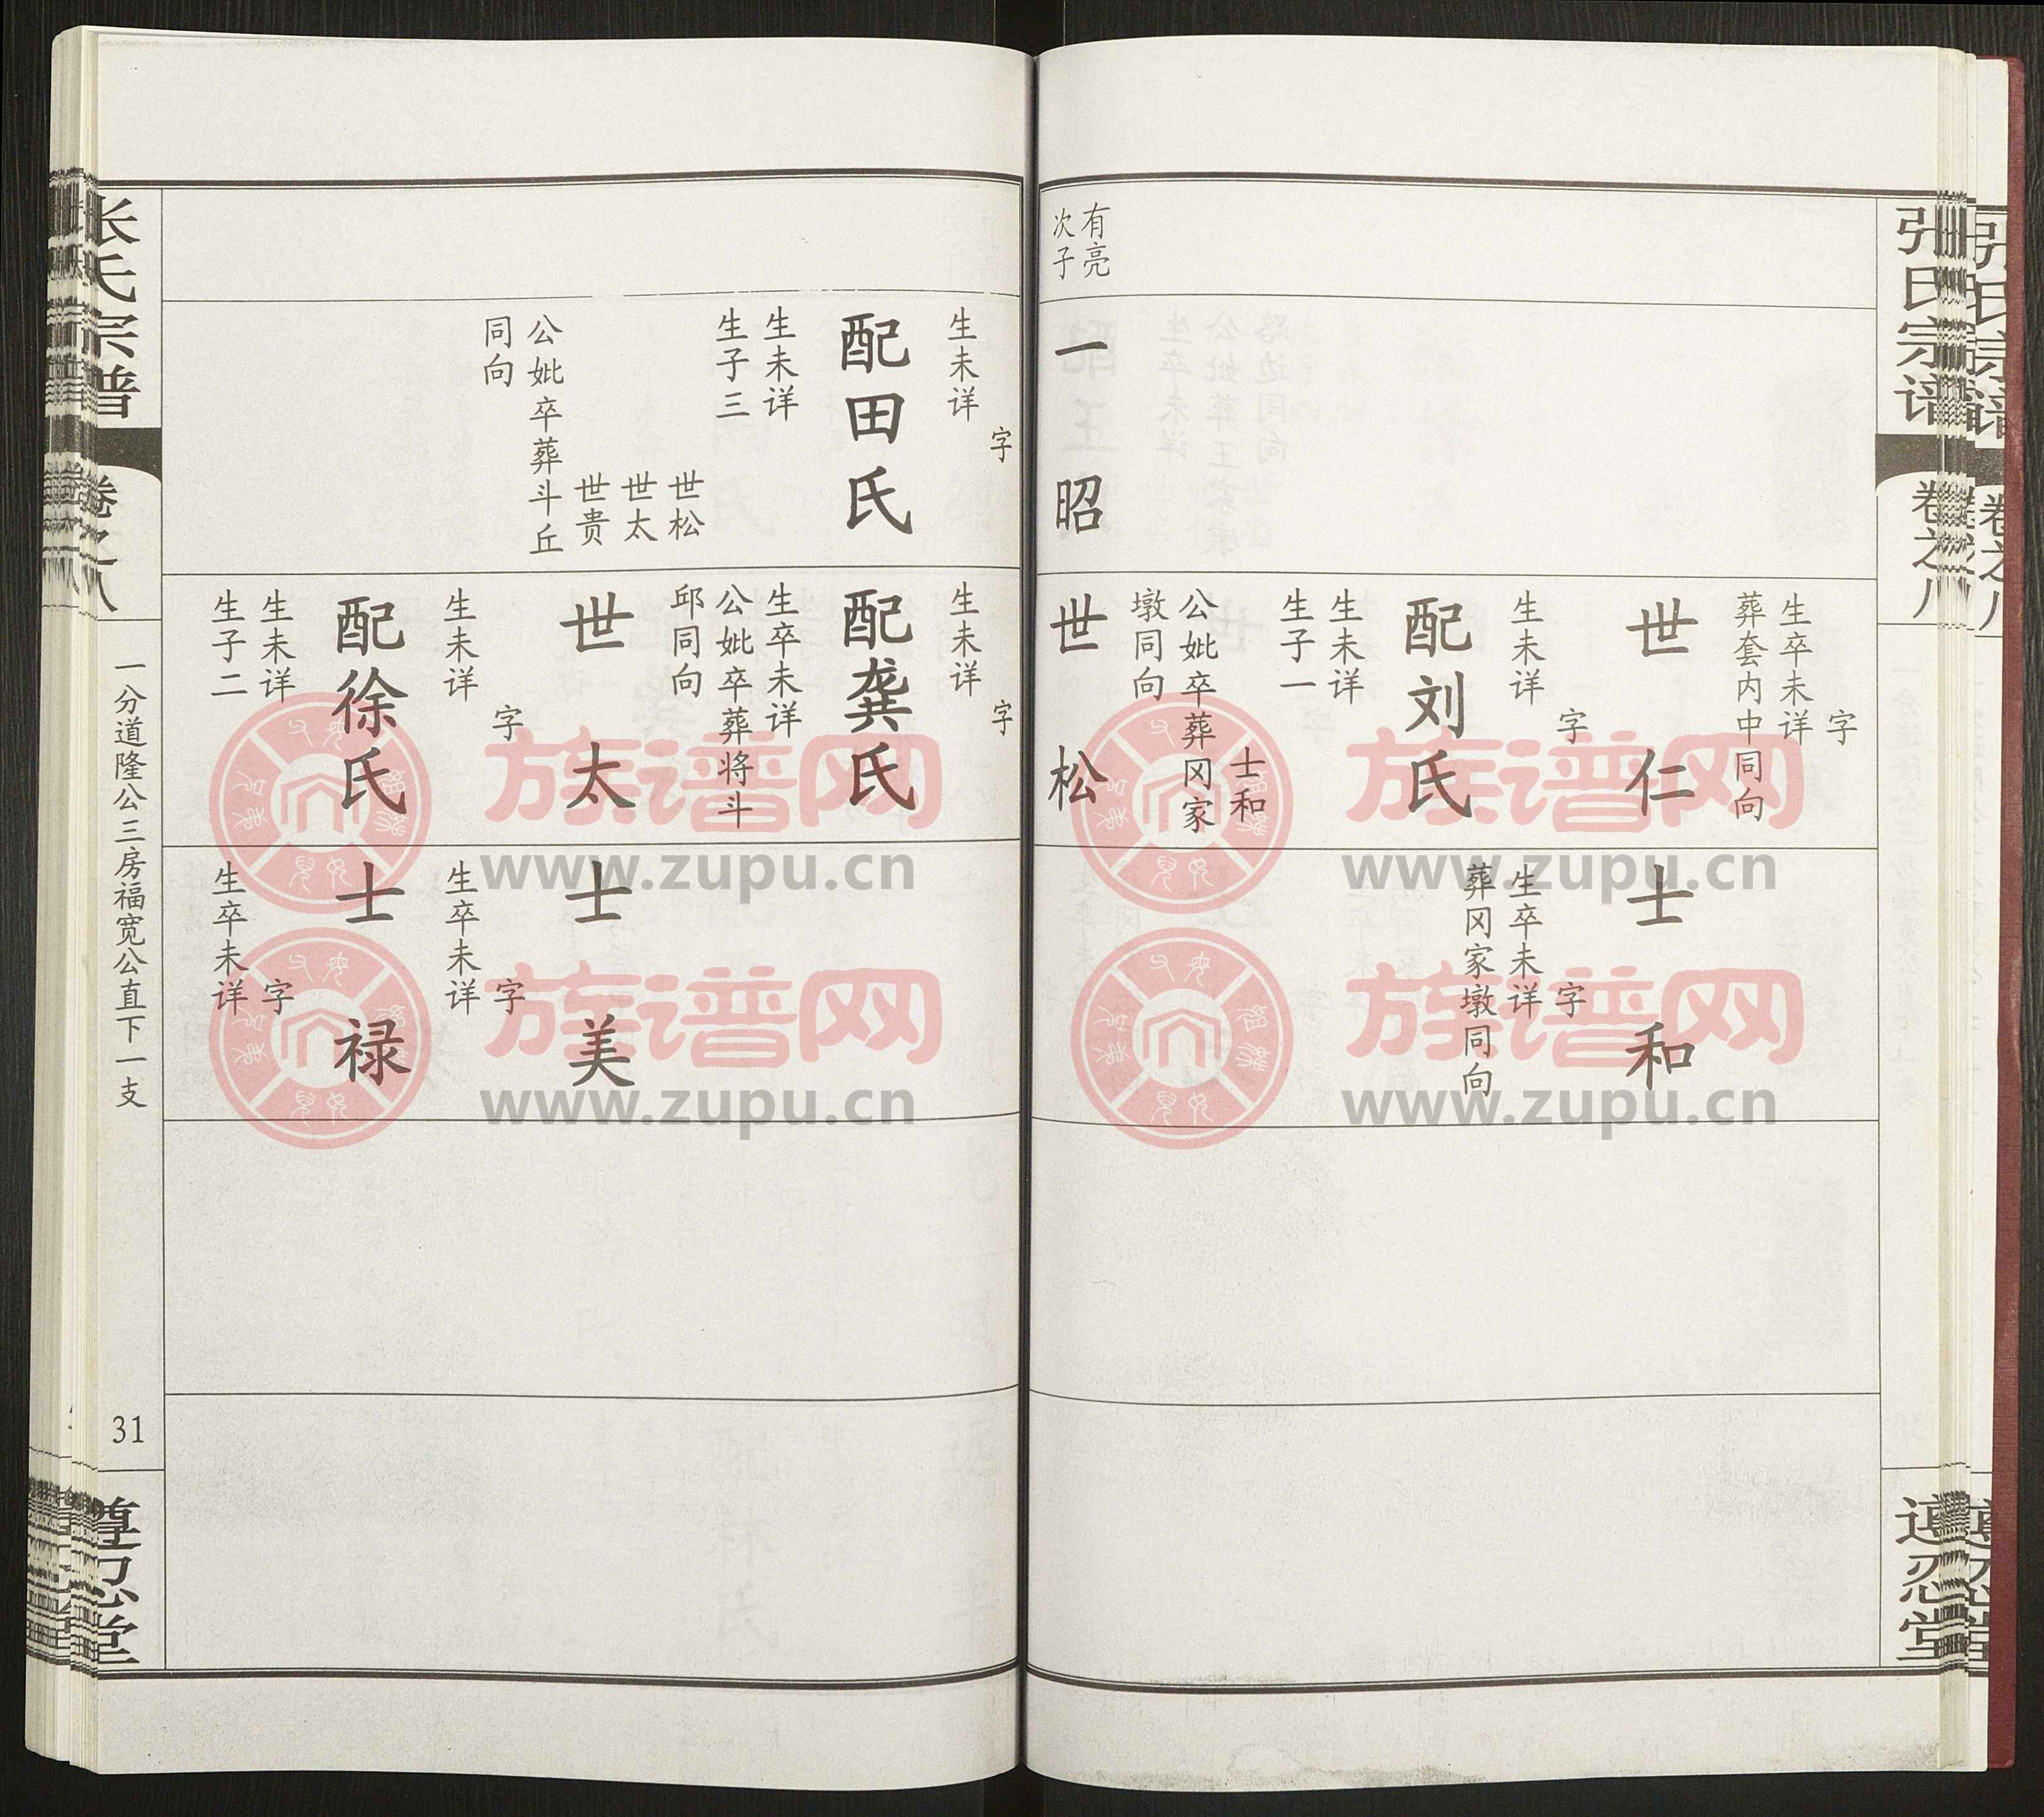 张氏宗谱
卷之八
遵忍堂
有亮
次子
一昭
字
生卒未详
葬套内中同向
世仁
字
生未详
配刘氏
生未详
生子一
士和
公妣卒葬冈家
墩同向
世松
士和
字
生卒未详
葬冈家墩同向
字
生未详
配田氏
生未详
生子三
世松
世太
世贵
公妣卒葬斗丘
同向
字
生未详
配龚氏
生卒未详
公妣卒葬将斗
邱同向
世太
字
生未详
配徐氏
生未详
生子二
士美
字
生卒未详
士禄
字
生卒未详
张氏宗谱
卷之八
一分道隆公三房福宽公直下一支
31
遵忍堂
族谱网
www.zupu.cn
族谱网
www.zupu.cn
族谱网
www.zupu.cn
族谱网
www.zupu.cn